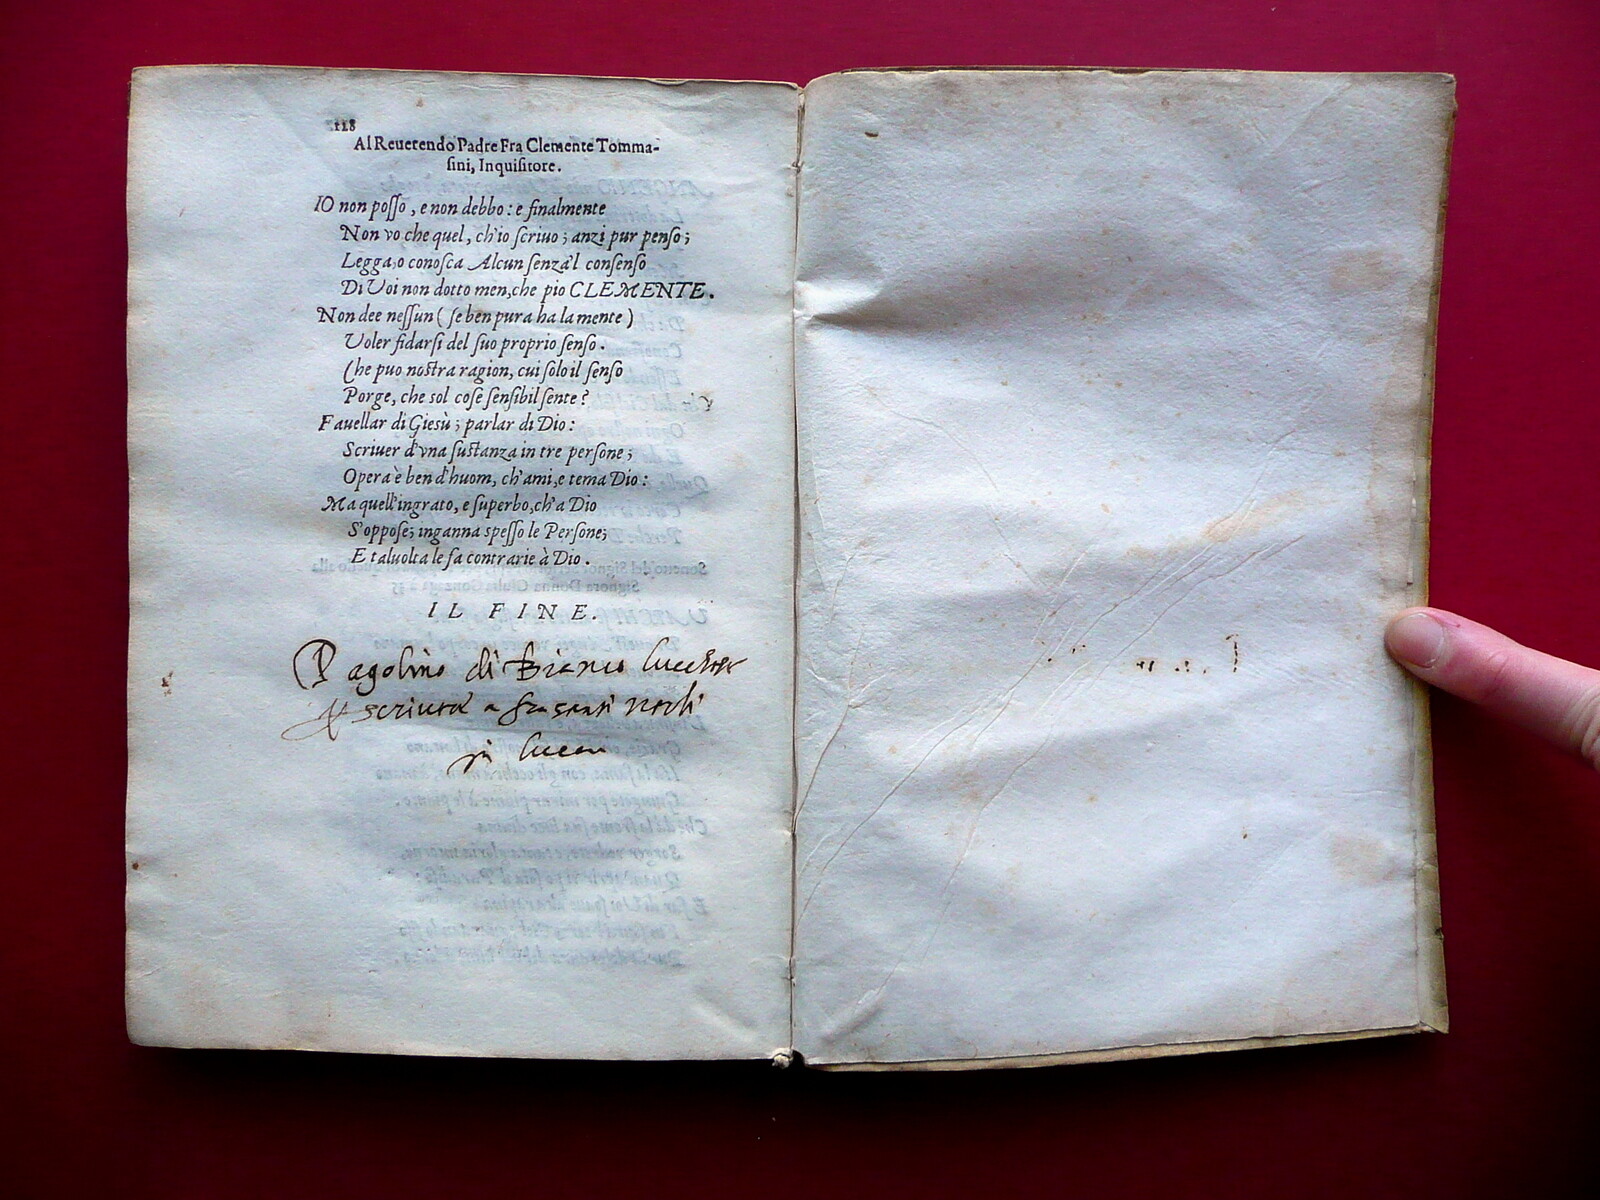 118
Al Reuerendo Padre Fra Clemente Tomma-
sini, Inquisitore.
IO non posso, e non debbo: e finalmente
Non vo che quel, ch'io scriuo; anzi pur penso;
Legga, o conosca Alcun senza'l consenso
Di Voi non dotto men, che pio CLEMENTE.
Non dee nessun ( se ben pura ha la mente )
Voler fidarsi del suo proprio senso.
Che puo nostra ragion, cui solo il senso
Porge, che sol cose sensibil sente?
Fauellar di Giesù; parlar di Dio:
Scriuer d'vna sustanza in tre persone;
Opera è ben d'huom, ch'ami, e tema Dio:
Ma quell'ingrato, e superbo, ch'a Dio
S'oppose; inganna spesso le Persone;
E taluolta le fa contrarie à Dio.
IL FINE.
Pagolino di Bianco
in Lucca